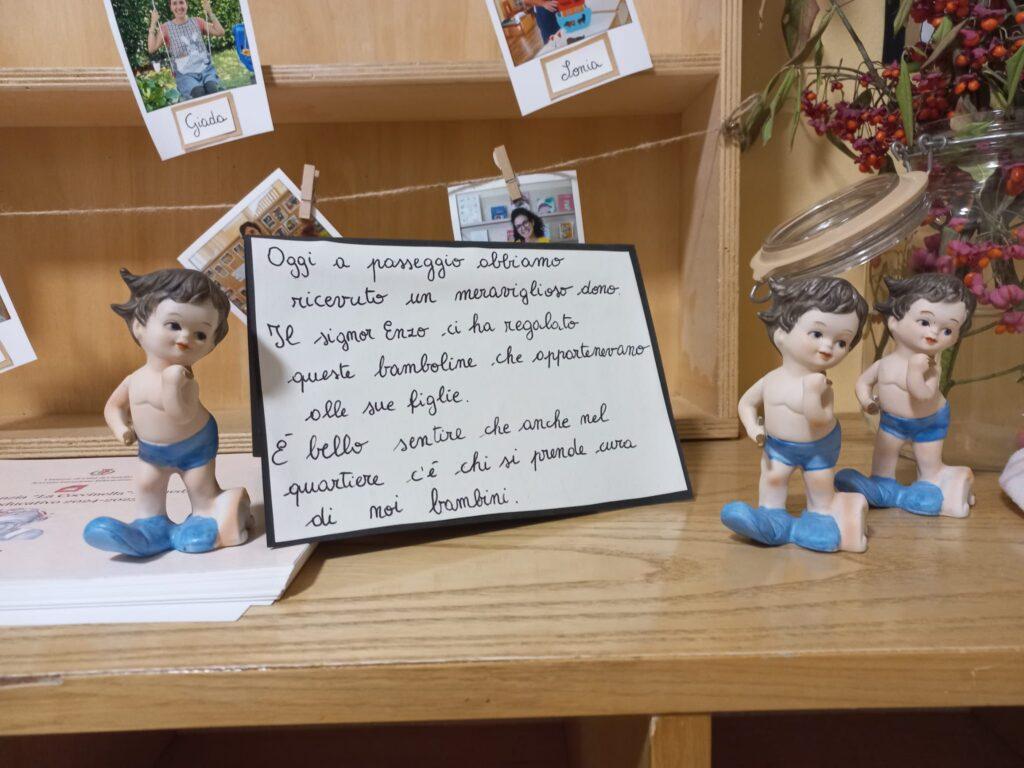 Giada
Sonia
Oggi a passeggio abbiamo
ricevuto un meraviglioso dono.
Il signor Enzo ci ha regalato
queste bamboline che appartenevano
alle sue figlie.
È bello sentire che anche nel
quartiere c'è chi si prende cura
di noi bambini.
"La Coccinella"